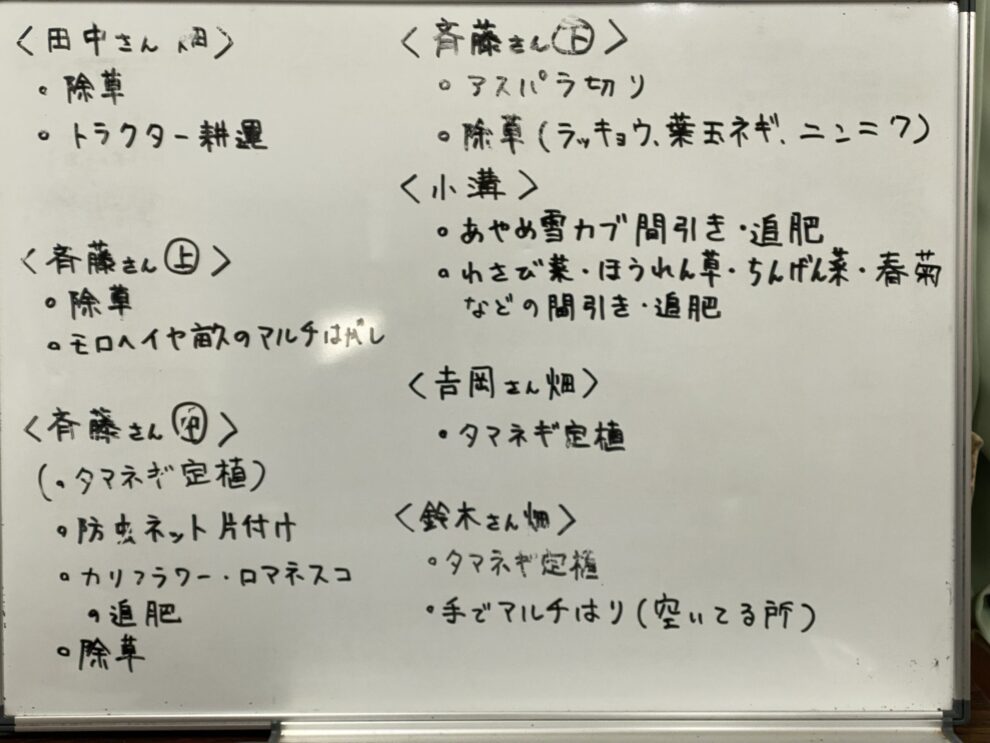 〈田中さん 畑〉
・除草
・トラクター耕運
〈斉藤さん㊤〉
・除草
・モロヘイヤ畝のマルチはがし
〈斉藤さん㊥〉
(・タマネギ定植)
・防虫ネット片付け
・カリフラワー・ロマネスコ
の追肥
・除草
〈斉藤さん㊦〉
・アスパラ切り
・除草(ラッキョウ、葉玉ネギ、ニンニク)
〈小溝〉
・あやめ雪カブ間引き・追肥
・わさび菜・ほうれん草・ちんげん菜・春菊
などの間引き・追肥
〈吉岡さん畑〉
・タマネギ定植
〈鈴木さん畑〉
・タマネギ定植
・手でマルチはり(空いてる所)